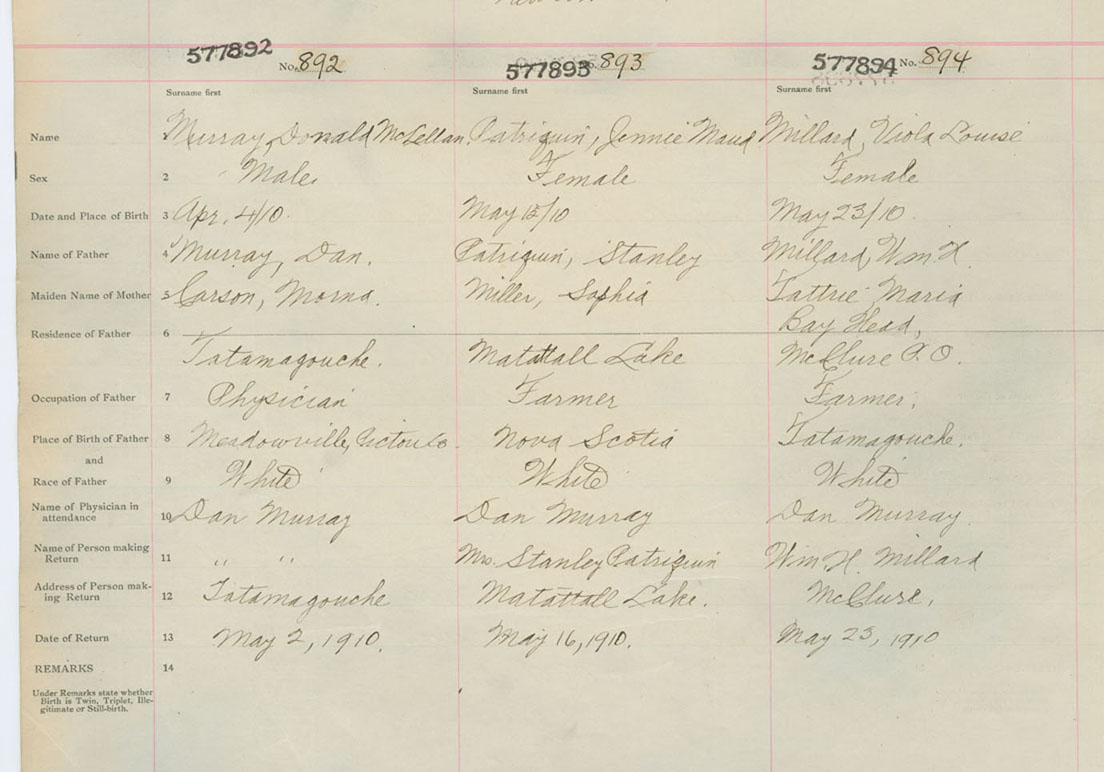 577892 No. 892 577893 No. 893 577894 No. 894
Surname first Surname first Surname first
Name Murray, Donald McLellan. Patriquin, Jennie Maud Millard, Viola Louise
Sex 2 Male Female Female
Date and Place of Birth 3 Apr. 4/10. May 15/10 May 23/10.
Name of Father 4 Murray, Dan. Patriquin, Stanley Millard, Wm H.
Maiden Name of Mother 5 Carson, Morna. Miller, Sophia Tattrie Maria
Bay Head,
Residence of Father 6
Tatamagouche. Matattall Lake McClure P.O.
Occupation of Father 7 Physician Farmer Farmer.
Place of Birth of Father 8 Meadowville, Pictou Co. Nova Scotia Tatamagouche.
and
Race of Father 9 White White White
Name of Physician in
attendance 10 Dan Murray Dan Murray Dan Murray.
Name of Person making
Return 11 " " Mrs. Stanley Patriquin Wm H. Millard
Address of Person mak-
ing Return 12 Tatamagouche Matattall Lake. McClure,
Date of Return 13 May 2, 1910. May 16, 1910. May 25, 1910
REMARKS 14
Under Remarks state whether
Birth is Twin, Triplet, Ille-
gitimate or Still-birth.